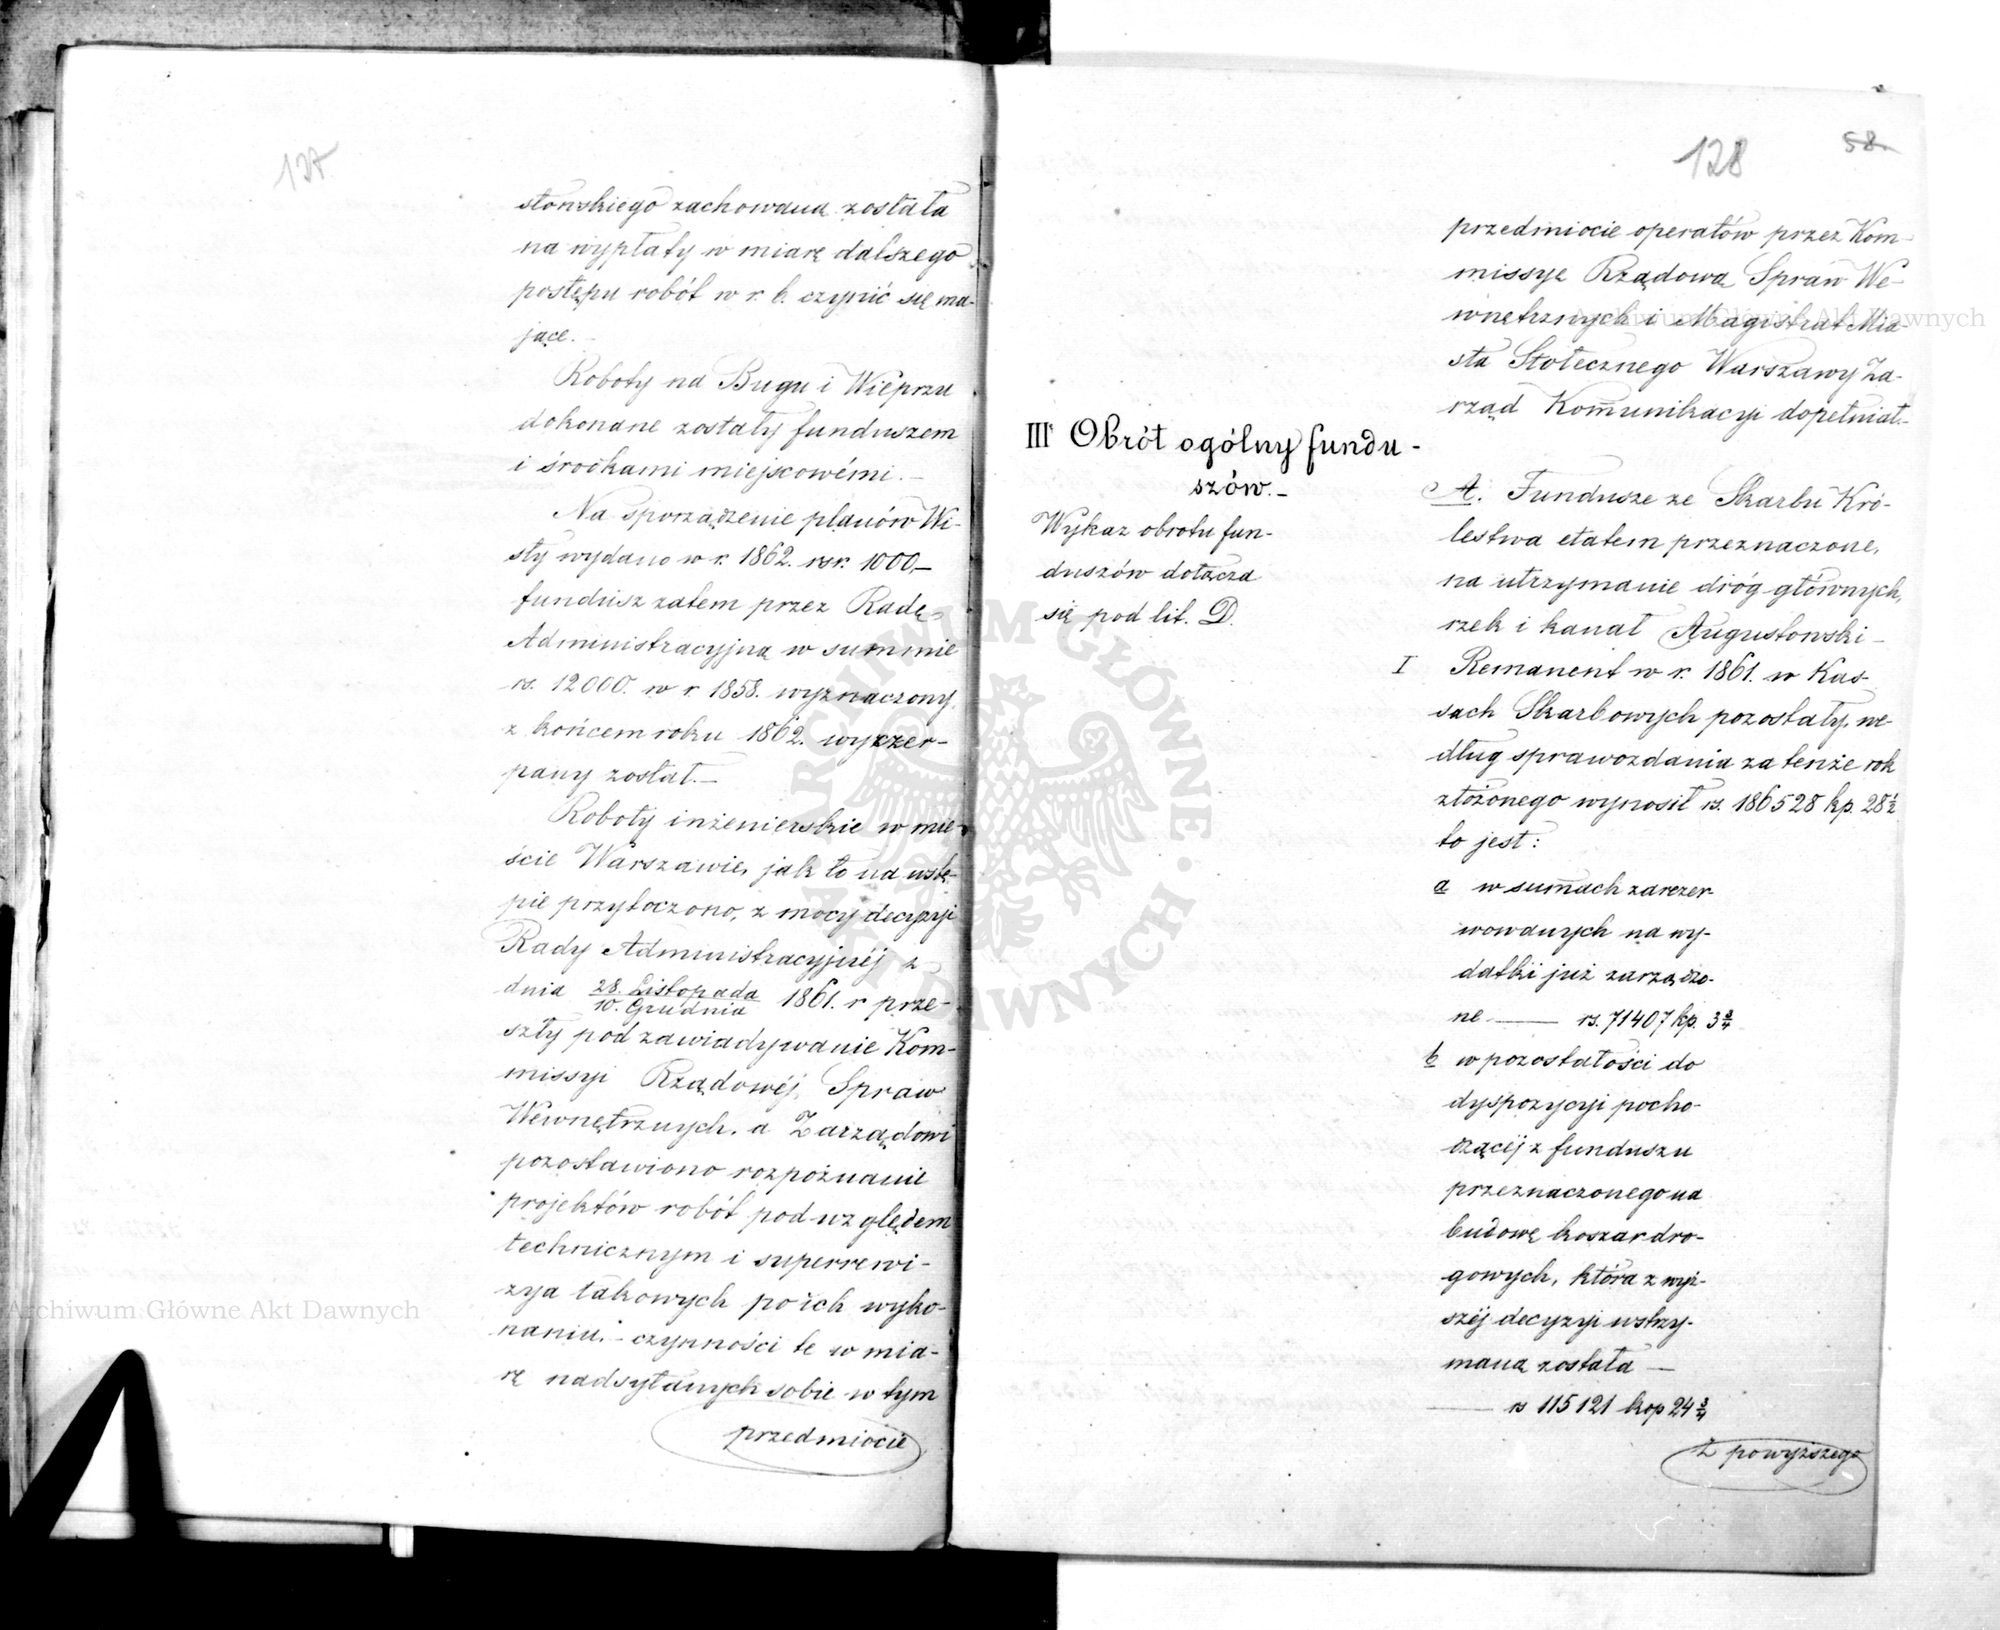 127
stowskiego zachowaną została
na wypłaty w miarę dalszego
postępu robót w r. b. czynić się ma-
jące.
Roboty na Bugu i Wieprzu
dokonane zostały funduszem
i środkami miejscowémi.
Na sporządzenie planów Wi-
sły wydano w r. 1862. rsr. 1000.–
fundusz zatem przez Radę
Administracyjną w summie
rs. 12000. w r. 1858. wyznaczony,
z końcem roku 1862. wyczer-
pany został.–
Roboty inżenierskie w mie-
ście Warszawie, jak to na wstę-
pie przytoczono, z mocy decyzyi
Rady Administracyjnéj z
dnia 28. Listopada / 10. Grudnia 1861. r prze-
szły pod zawiadywanie Kom-
missyi Rządowéj Spraw
Wewnętrznych, a Zarządowi
pozostawiono rozpoznanie
projektów robót pod względem
technicznym i superrewi-
zya takowych po ich wyko-
naniu.– czynności te w mia-
rę nadsyłanych sobie w tym
przedmiocie
128
58.
przedmiocie operatów przez Kom-
missyę Rządową Spraw We-
wnętrznych i Magistrat Mia-
sta Stołecznego Warszawy Za-
rząd Kommunikacyi dopełniał.–
III Obrót ogólny fundu-
szów.–
Wykaz obrotu fun-
duszów dołącza
się pod lit. D.
A. Fundusze ze Skarbu Kró-
lestwa etatem przeznaczone,
na utrzymanie dróg głównych,
rzek i kanał Augustowski–
I Remanent w r. 1861. w Kas-
sach Skarbowych pozostały, we-
dług sprawozdania za tenże rok
złożonego wynosił rs. 186528 kp. 28 1/2
to jest:
a w summach zarezer
wowanych na wy-
datki już zarządzo-
ne — rs. 71407 kp. 3 3/4
b w pozostałości do
dyspozycyi pocho-
dzącéj z funduszu
przeznaczonego na
budowę koszar dro-
gowych, która z wyż-
széj decyzyi wstrzy-
maną została —
— rs 115121 kop 24 3/4
Z powyższego
Archiwum Główne Akt Dawnych
Archiwum Główne Akt Dawnych
ARCHIWUM GŁÓWNE AKT DAWNYCH